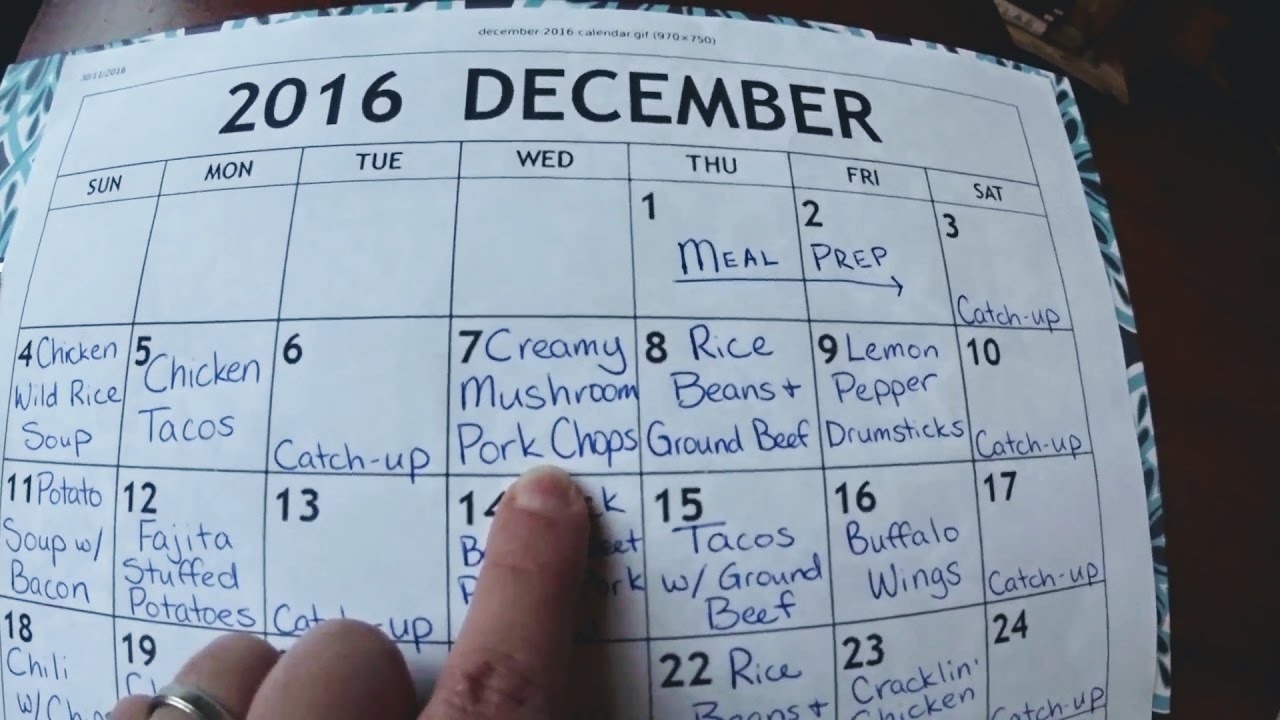 december 2016 calendar.gif (970×750)
30/11/2016
2016 DECEMBER
SUN MON TUE WED THU FRI SAT
1 MEAL
2 PREP
3 Catch-up
4 Chicken
Wild Rice
Soup
5 Chicken
Tacos
6 Catch-up
7 Creamy
Mushroom
Pork Chops
8 Rice
Beans +
Ground Beef
9 Lemon
Pepper
Drumsticks
10 Catch-up
11 Potato
Soup w/
Bacon
12
Fajita
Stuffed
Potatoes
13
15
Tacos
w/ Ground
Beef
16
Buffalo
Wings
17
Catch-up
18
Chili
19
22 Rice
Beans +
23
Cracklin'
Chicken
24
Catch-up